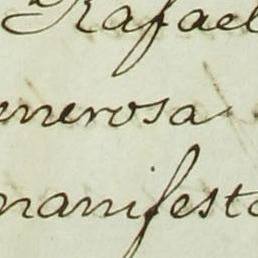 Rafael
enerosa
manifesto